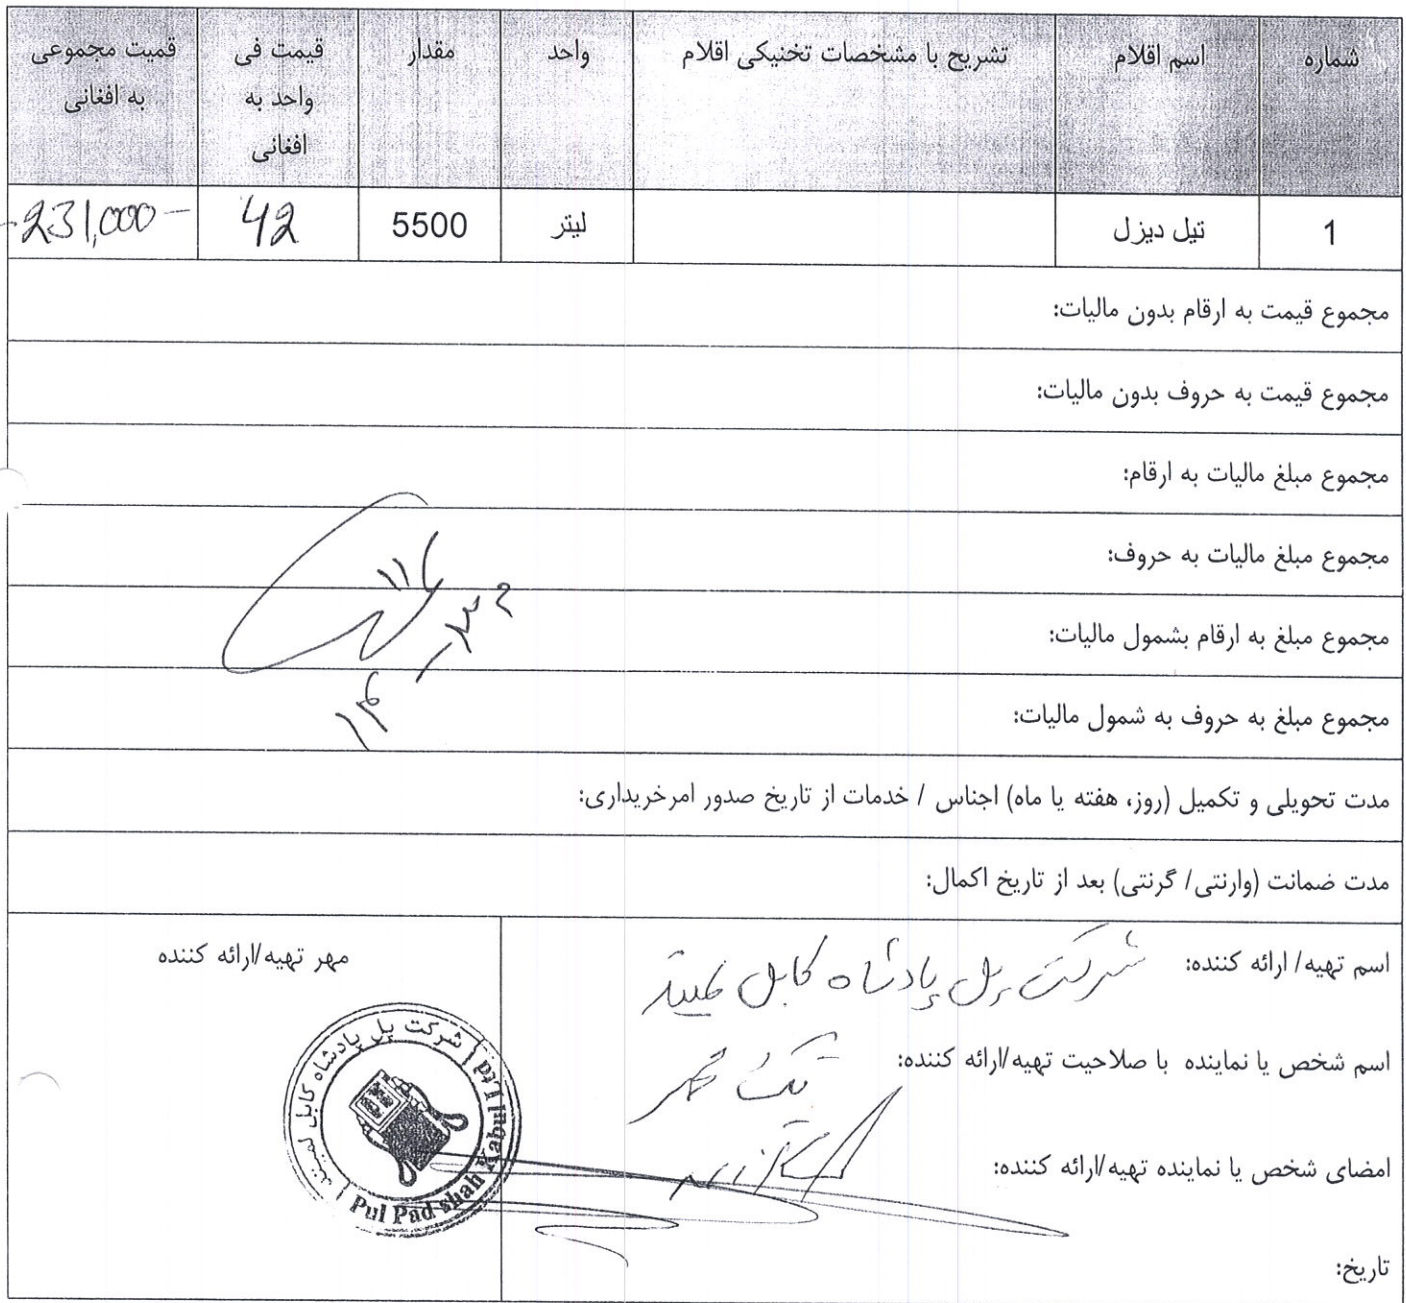 شماره
اسم اقلام
تشریح با مشخصات تخنیکی اقلام
واحد
مقدار
قیمت فی
واحد به
افغانی
قمیت مجموعی
به افغانی
1
تیل دیزل
لیتر
5500
42
231,000-
مجموع قیمت به ارقام بدون مالیات:
مجموع قیمت به حروف بدون مالیات:
مجموع مبلغ مالیات به ارقام:
مجموع مبلغ مالیات به حروف:
مجموع مبلغ به ارقام بشمول مالیات:
مجموع مبلغ به حروف به شمول مالیات:
مدت تحویلی و تکمیل (روز، هفته یا ماه) اجناس / خدمات از تاریخ صدور امرخریداری:
مدت ضمانت (وارنتی/ گرنتی) بعد از تاریخ اکمال:
اسم تهیه/ ارائه کننده: شرکت پل پادشاه کابل لمیتد
اسم شخص یا نماینده با صلاحیت تهیه/ارائه کننده:
امضای شخص یا نماینده تهیه/ارائه کننده:
تاریخ:
مهر تهیه/ارائه کننده
شرکت پل پادشاه کابل لمیتد
Pul Pad shah Kabul Ltd